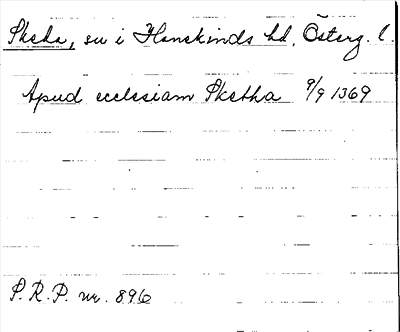 Skeda, sn i Hanekinds hd, Österg. l.
Apud ecclesiam Sketha 9/9 1369
S.R.P. nr. 896